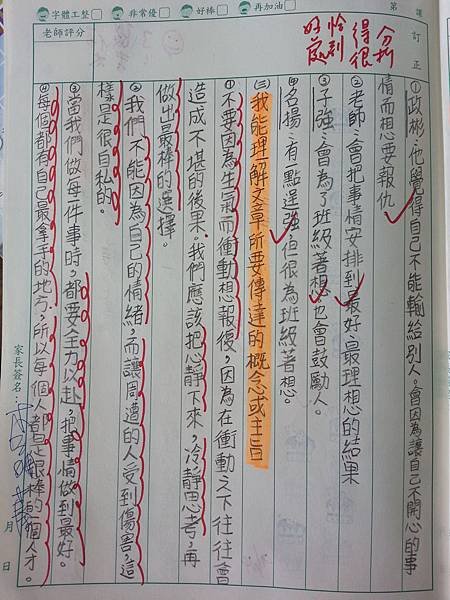 字體工整 非常優 好棒 再加油
第 課
訂正
老師評分
分析得很恰到好處
①政彬:他覺得自己不能輸給別人。會因為讓自己不開心的事
情而想要報仇
②老師:會把事情安排到最好、最理想的結果
③子強:會為了班級著想也會鼓勵人。
④名揚:有一點逞強但很為班級著想。
(三)我能理解文章所要傳達的概念或主旨
①不要因為生氣而衝動想報復,因為在衝動之下往往會
造成不堪的後果。我們應該把心靜下來,冷靜思考,再
做出最棒的選擇。
②我們不能因為自己的情緒,而讓周遭的人受到傷害,這
樣是很自私的。
③當我們做每一件事時,都要全力以赴,把事情做到最好。
④每個都有自己最拿手的地方,所以每個人都是很棒的個人才。
家長簽名:
月 日